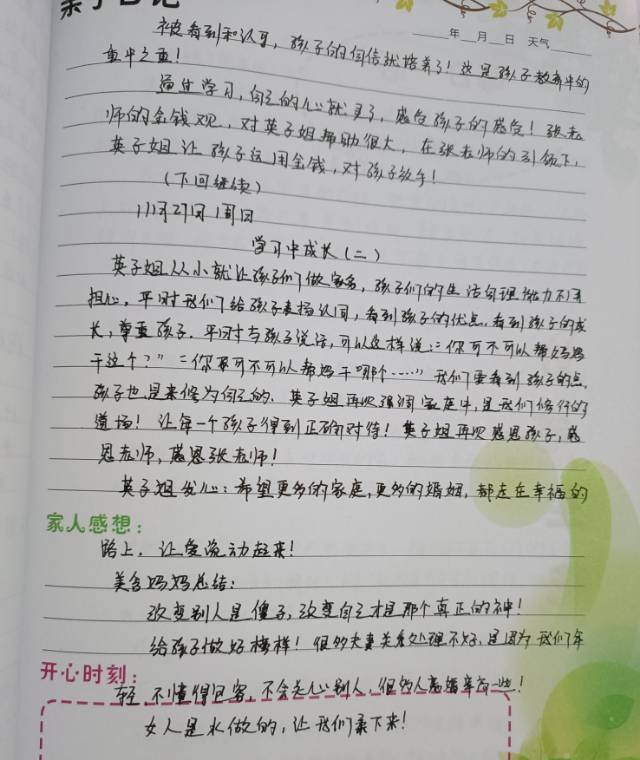 亲子日记
年 月 日 天气
被看到和认可，孩子的自信就培养了！这是孩子教育中的
重中之重！
通过学习，自己的心就更了，感受孩子的感受！张老
师的金钱观，对英子姐帮助很大，在张老师的引领下，
英子姐让孩子运用金钱，对孩子放手！
（下回继续）
11月27日 周日
学习中成长（二）
英子姐从小就让孩子们做家务，孩子们的生活自理能力不用
担心，平时我们给孩子表扬认同，看到孩子的优点，看到孩子的成
长，尊重孩子。平时与孩子说话，可以这样说："你可不可以帮妈妈
干这个？" "你可不可以帮妈干哪个……" 我们要看到孩子的点，
孩子也是来修为自己的。英子姐再次强调家庭中，是我们修行的
道场！让每一个孩子得到正确对待！英子姐再次感恩孩子，感
恩老师，感恩张老师！
英子姐发心：希望更多的家庭，更多的婚姻，都走在幸福的
家人感想：
路上，让爱流动起来！
美含妈妈总结：
改变别人是傻子，改变自己才是那个真正的神！
给孩子做好榜样！很多夫妻关系处理不好，是因为我们年
开心时刻：
轻，不懂得包容，不会关心别人，很多人离婚率高一些！
女人是水做的，让我们柔下来！